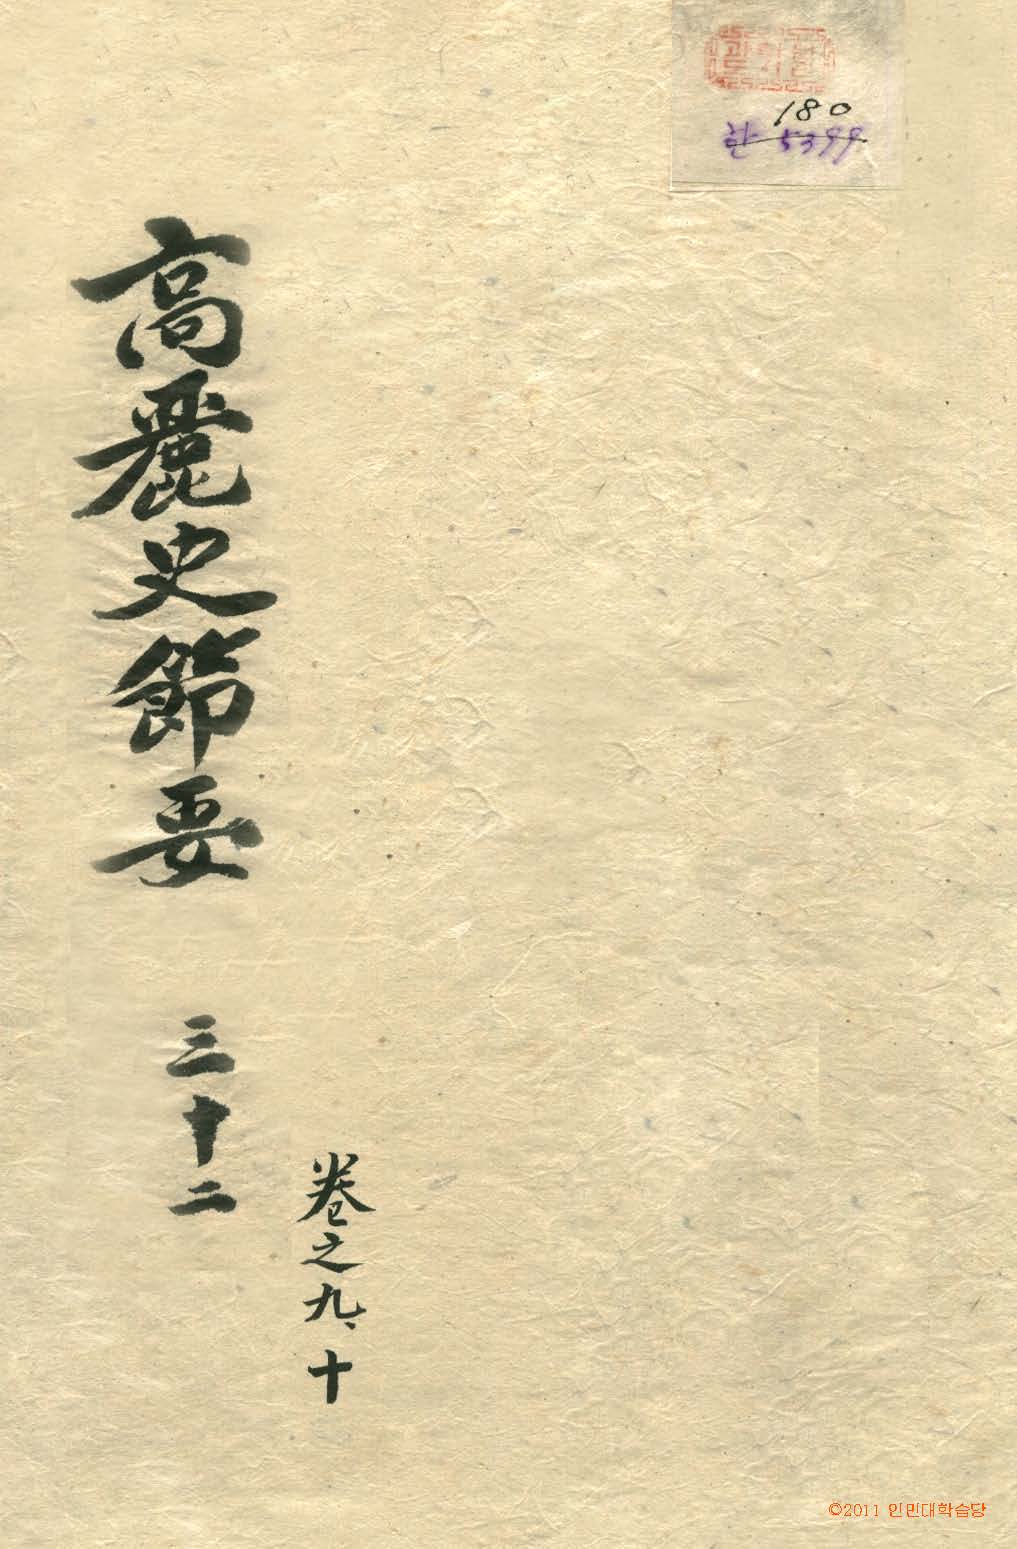 180
한 5399
高麗史節要 三十二
卷之九、十
©2011 인민대학습당